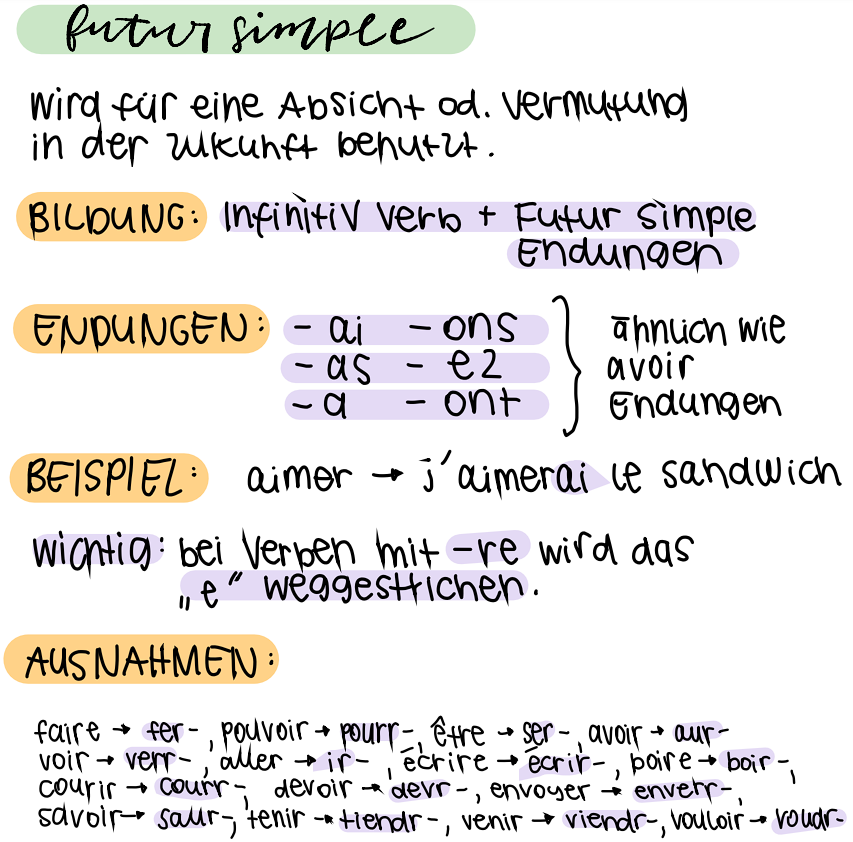 futur simple
wird für eine Absicht od. Vermutung
in der Zukunft benutzt.
BILDUNG: Infinitiv Verb + Futur Simple
Endungen
ENDUNGEN: - ai - ons } ähnlich wie
- as - ez avoir
- a - ont Endungen
BEISPIEL: aimer → j'aimerai le sandwich
wichtig: bei Verben mit -re wird das
„e“ weggestrichen.
AUSNAHMEN:
faire → fer-, pouvoir → pourr-, être → ser-, avoir → aur-
voir → verr-, aller → ir-, écrire → écrir-, boire → boir-,
courir → courr-, devoir → devr-, envoyer → enverr-,
savoir → saur-, tenir → tiendr-, venir → viendr-, vouloir → voudr-